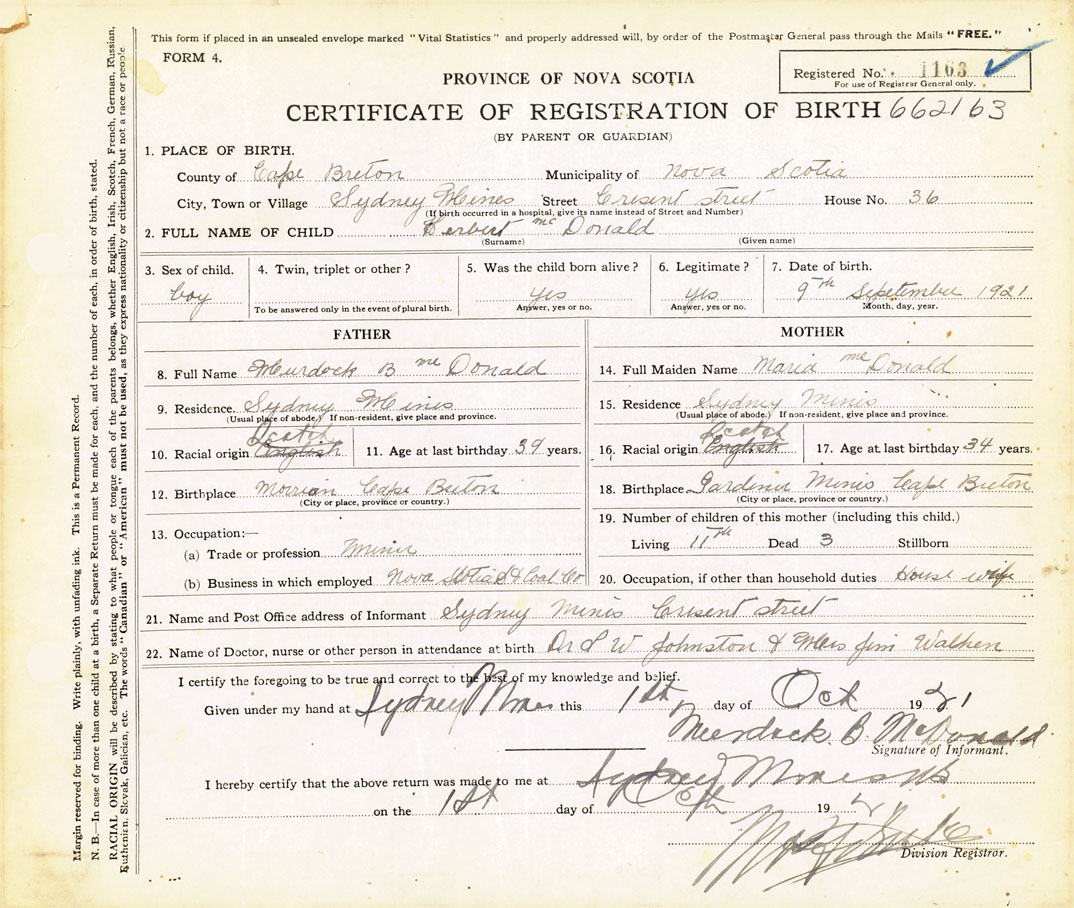 This form if placed in an unsealed envelope marked "Vital Statistics" and properly addressed will, by order of the Postmaster General pass through the Mails "FREE."
FORM 4.
Registered No. 1163
For use of Registrar General only.
PROVINCE OF NOVA SCOTIA
CERTIFICATE OF REGISTRATION OF BIRTH 662163
(BY PARENT OR GUARDIAN)
1. PLACE OF BIRTH.
County of Cape Breton Municipality of Nova Scotia
City, Town or Village Sydney Mines Street Cresent street House No. 36
(If birth occurred in a hospital, give its name instead of Street and Number)
2. FULL NAME OF CHILD Herbert Mc Donald
(Surname) (Given name)
3. Sex of child. 4. Twin, triplet or other? 5. Was the child born alive? 6. Legitimate? 7. Date of birth.
boy yes yes 9th September 1921
To be answered only in the event of plural birth. Answer, yes or no. Answer, yes or no. Month, day, year.
FATHER
8. Full Name Murdock B Mc Donald
9. Residence. Sydney Mines
(Usual place of abode.) If non-resident, give place and province.
Scotch
10. Racial origin English 11. Age at last birthday 39 years.
12. Birthplace Cape Breton
(City or place, province or country.)
13. Occupation:—
(a) Trade or profession Miner
(b) Business in which employed Nova Scotia S & Coal Co
MOTHER
14. Full Maiden Name Maria Mc Donald
15. Residence Sydney Minis
(Usual place of abode.) If non-resident, give place and province.
Scotch
16. Racial origin English 17. Age at last birthday 34 years.
18. Birthplace Gardener Minis Cape Breton
(City or place, province or country.)
19. Number of children of this mother (including this child.)
Living 11th Dead 3 Stillborn
20. Occupation, if other than household duties House wife
21. Name and Post Office address of Informant Sydney Minis Cresent street
22. Name of Doctor, nurse or other person in attendance at birth Dr L W Johnston & Mrs Jim Walker
I certify the foregoing to be true and correct to the best of my knowledge and belief.
Given under my hand at Sydney Mines this 1st day of Oct 1921
Murdock B. McDonald
Signature of Informant.
I hereby certify that the above return was made to me at Sydney Mines NS
on the 1st day of Oct 192
Division Registrar.
Margin reserved for binding. Write plainly, with unfading ink. This is a Permanent Record.
N. B.—In case of more than one child at a birth, a Separate Return must be made for each, and the number of each, in order of birth, stated.
RACIAL ORIGIN will be described by stating to what people or tongue each of the parents belongs, whether English, Irish, Scotch, French, German, Russian,
Ruthenian, Slovak, Galician, etc. The words "Canadian" or "American" must not be used, as they express nationality or citizenship but not a race or people.